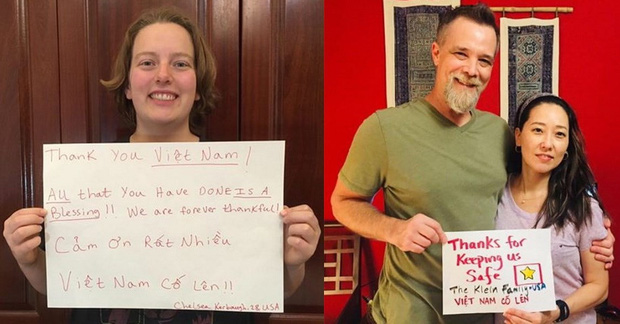 Thank You Việt Nam!
ALL that You Have DONE IS A
Blessing!! We are forever thankful!
Cảm ơn Rất Nhiều
Việt Nam Cố Lên!!
Chelsea Karbaugh, 28 USA
Thanks for
Keeping us
Safe
The Klein Family-USA
VIỆT NAM CỐ LÊN